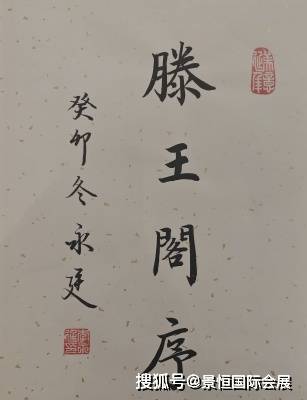 滕王閣序
癸卯冬永廷
搜狐号@景恒国际会展